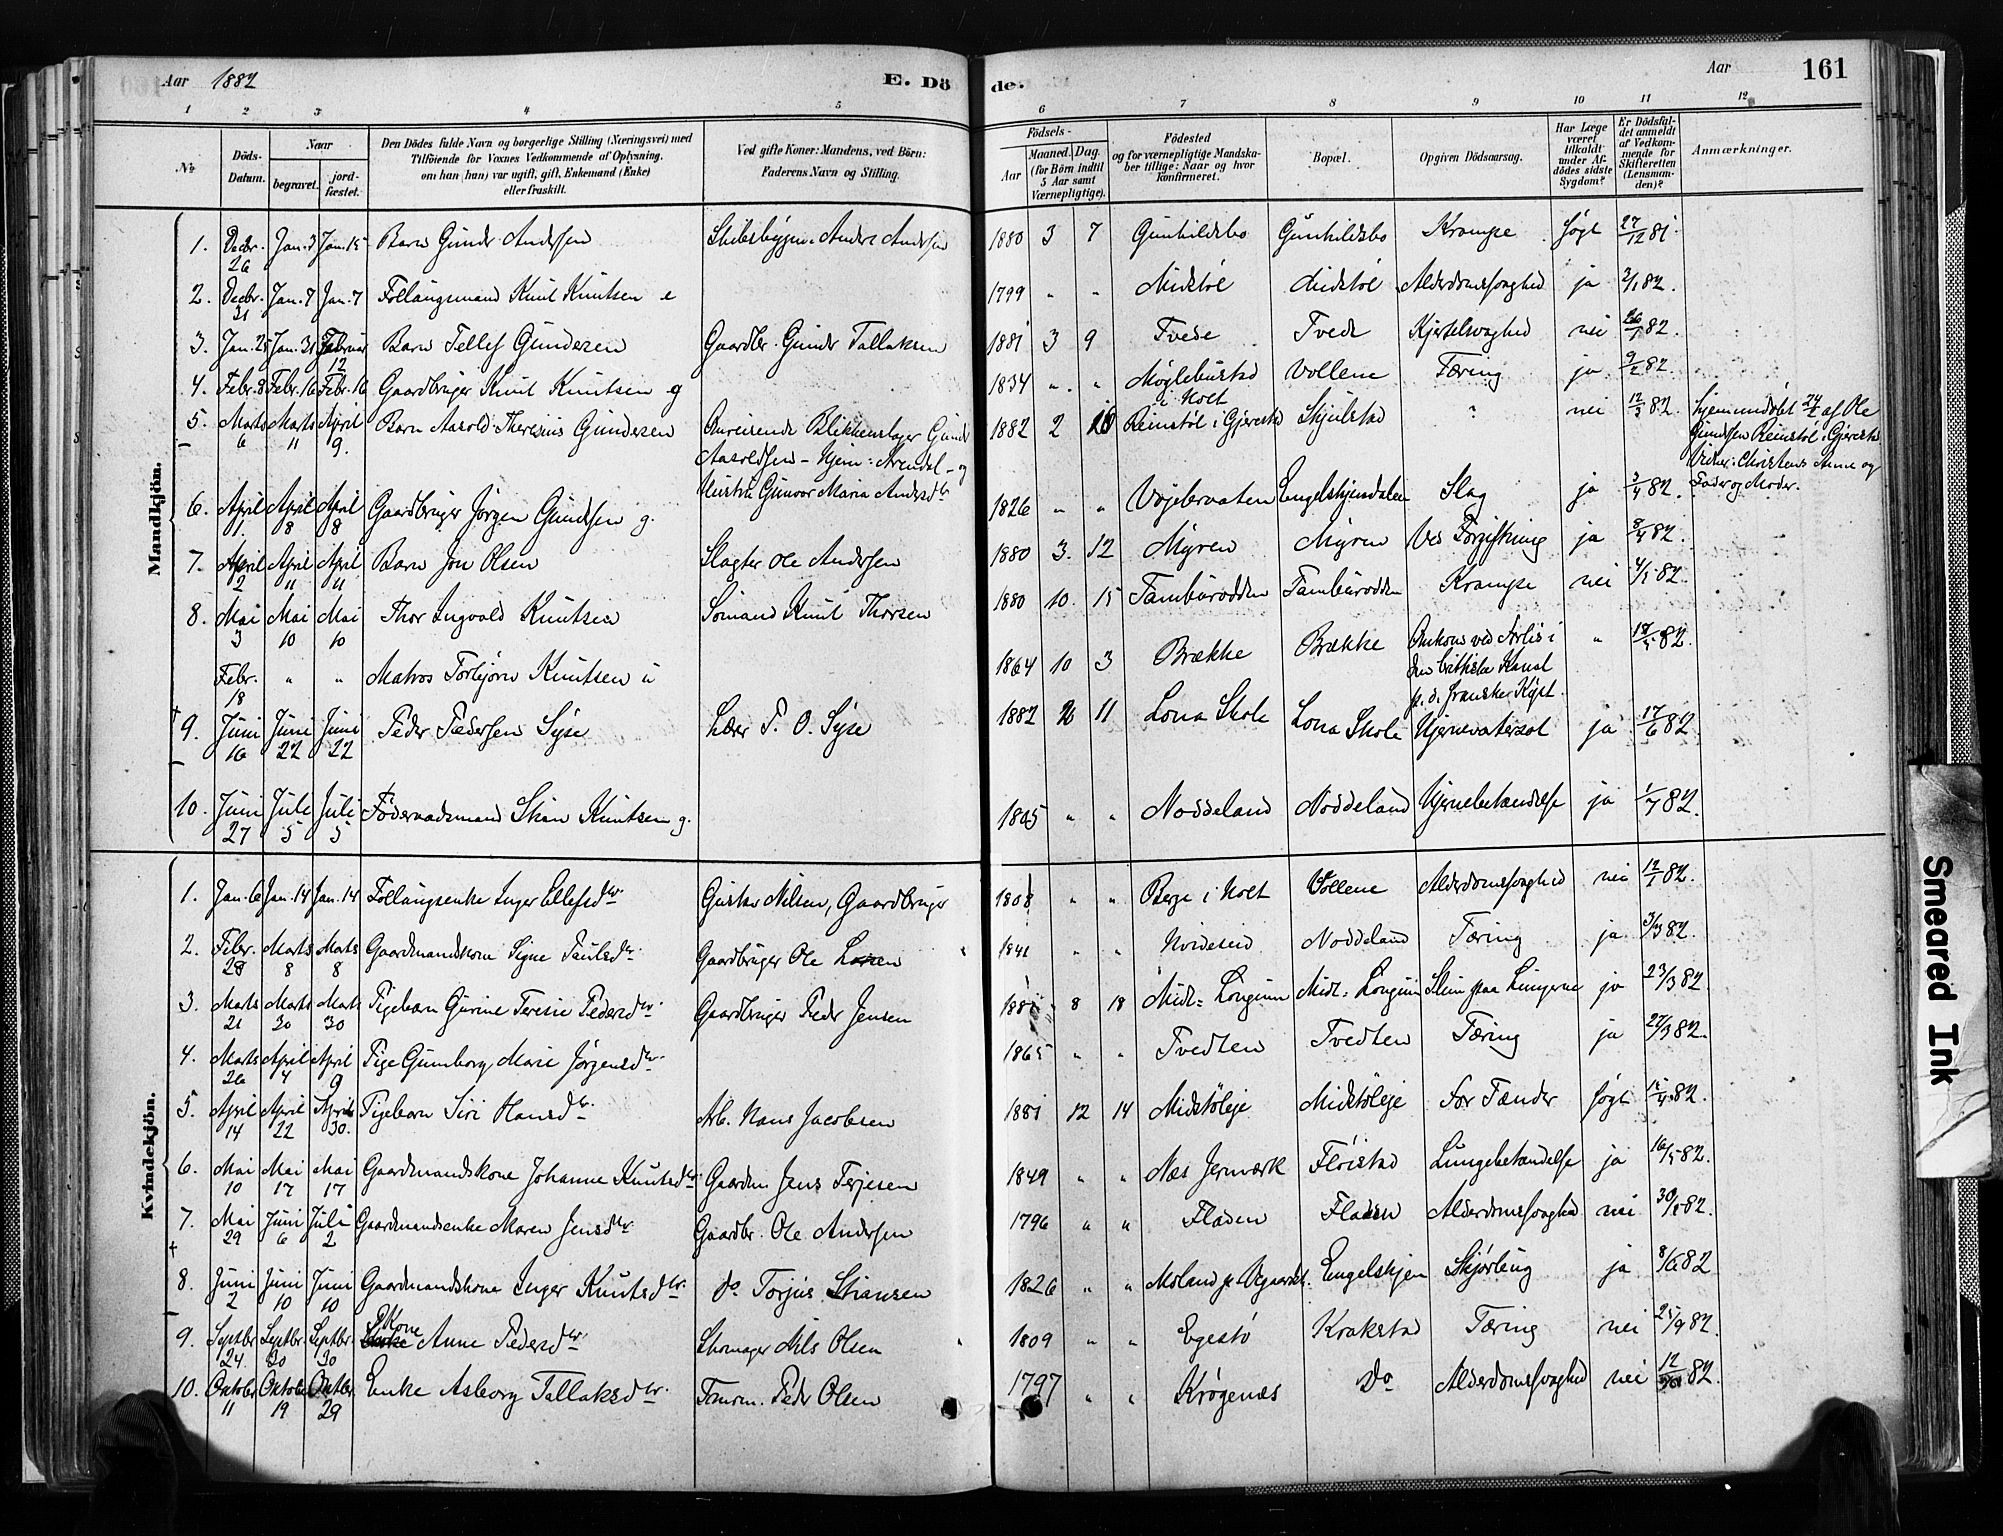 Aar 1882 E. Dö de. Aar 161
1 2 3 4 5 6 7 8 9 10 11 12
№
Döds-Datum.
Naar
begravet.
jord-fæstet.
Den Dödes fulde Navn og borgerlige Stilling (Næringsvei) med
Tilföiende for Voxnes Vedkommende af Oplysning,
om han (hun) var ugift, gift, Enkemand (Enke)
eller fraskilt.
Ved gifte Koner: Mandens, ved Börn:
Faderens Navn og Stilling.
Födsels-
Aar
Maaned. Dag.
(for Börn indtil
5 Aar samt
Værnepligtige).
Födested
og for værnepligtige Mandska-
ber tillige: Naar og hvor
konfirmeret.
Bopæl.
Opgiven Dödsaarsag.
Har Læge
været
tilkaldt
under Af-
dödes sidste
Sygdom?
Er Dödsfal-
det anmeldt
af Vedkom-
mende for
Skifteretten
(Lensman-
den)?
Anmærkninger.
Mandkjön.
1. Decbr. 26 Jan. 3 Jan. 15 Barn Gunder Andersen Skibsbygger Anders Andersen 1880 3 7 Gunhildsbo Gunhildsbo Krampe søgt 27/12 81.
2. Decbr. 31 Jan. 7 Jan. 7 Follaugsmand Knut Knutsen e 1799 " " Midstöl Midstöl Alderdomssvaghed ja 2/1 82.
3. Jan. 25 Jan. 31 Februar 12 Barn Tellef Gundersen Gaardbr. Gunder Tallaksen 1881 3 9 Tvede Tvede Kjertelsvaghed nei 26/1 82.
4. Febr. 8 Febr. 16 Febr. 16 Gaardbruger Knut Knutsen g 1834 " " Møglebustad i Holt Vollene Tæring ja 9/2 82.
5. Marts 6 Marts 11 April 9. Barn Aasold Theresius Gundersen Omreisende Blikkenslager Gunder
Aasoldsen – Hjem: Arendal – og
Hustru Gunvor Maria Andersdtr 1882 2 10 Reinstöl i Gjerestad Skjulstad " nei 12/3 82. Hjemmedøbt 24/2 af Ole
Gundersen Reinstöl i Gjerestad
Vidner: Christens Anne og
Fader og Moder.
6. April 1. April 8 April 8 Gaardbruger Jørgen Gundersen g. 1826 " " Vöjebvaten Engelskjendalen Slag ja 3/4 82.
7. April 2 April 11 April 11 Barn Jon Olsen Slagter Ole Andersen 1880 3. 12 Myren Myren Ved Forgiftning ja 8/4 82.
8. Mai 3 Mai 10 Mai 10 Thor Ingvald Knutsen Sömand Knut Thorsen 1880 10. 15 Tamburodden Tamburodden Krampe nei 4/5 82.
Febr. 18 " " Matros Torbjörn Knutsen u 1864 10 3 Brække Brække Omkom ved Forlis i
den brittiske Kanal
p. d. franske Kyst. " 18/5 82.
9. Juni 16 Juni 22 Juni 22 Peder Pedersen Syse Lærer P. O. Syse 1882 2 11 Lona Skole Lona Skole Hjernevatersot ja 17/6 82
10. Juni 27 Juli 5 Juli 5 Födevaadsmand Stian Knutsen g. 1805 " " Noddeland Noddeland Hjernebetændelse ja 1/7 82.
Kvindekjön.
1. Jan. 6 Jan. 14 Jan. 14 Follaugsenke Inger Ellefsdtr. Gustav Nilsen, Gaardbruger 1808 " " Berge i Holt Vollene Alderdomssvaghed nei 12/1 82.
2. Febr. 28 Marts 8 Marts 8 Gaardmandskone Signe Paulsdtr Gaardbruger Ole 1841 " " Hvideseid Noddeland Tæring ja 3/3 82.
3. Marts 21 Marts 30 Marts 30 Pigebarn Gurine Teresie Pedersdtr. Gaardbruger Peder Jensen 8 18 Midt-Longum Midt-Longum Slim paa Lungerne ja 23/3 82.
4. Marts 26 April 4 April 9 Pige Gunborg Marie Jørgensdtr. 1865 " " Tvedten Tvedten Tæring ja 27/3 82.
5. April 14 April 22 April 30. Pigebarn Siri Hansdtr. Arb. Hans Jacobsen 1881 12 14 Midstöleje Midstöleje For Tænder søgt 15/4 82.
6. Mai 10 Mai 17 Mai 17 Gaardmandskone Johanne Knutsdtr Gaardm. Jens Terjesen 1849 " " Næs Jernværk Flöistad Lungebetændelse ja 16/5 82.
7. Mai 29 Juni 6 Juli 2 Gaardmandsenke Maren Jensdtr Gaardbr. Ole Andersen 1796 " " Fladen Fladen Alderdomssvaghed nei 30/5 82.
8. Juni 2 Juni 10 Juni 10 Gaardmandskone Inger Knutsdtr. do Torjus Stiansen 1826 " " Moland p. Vegaardsh. Engelskjen Skjörbug ja 8/6 82
9. Septbr. 24 Septbr. 30 Septbr. 30 Kone Anne Pedersdtr Skomager Nils Olsen 1809 " " Egestö Krakstad Tæring nei 25/9 82.
10. Oktober 11 Oktober 19 Oktbr. 29 Enke Asborg Tallaksdtr. Tömrm. Peder Olsen 1797 " " Krøgenæs Do Alderdomssvaghed nei 12/10 82.
Smeared Ink